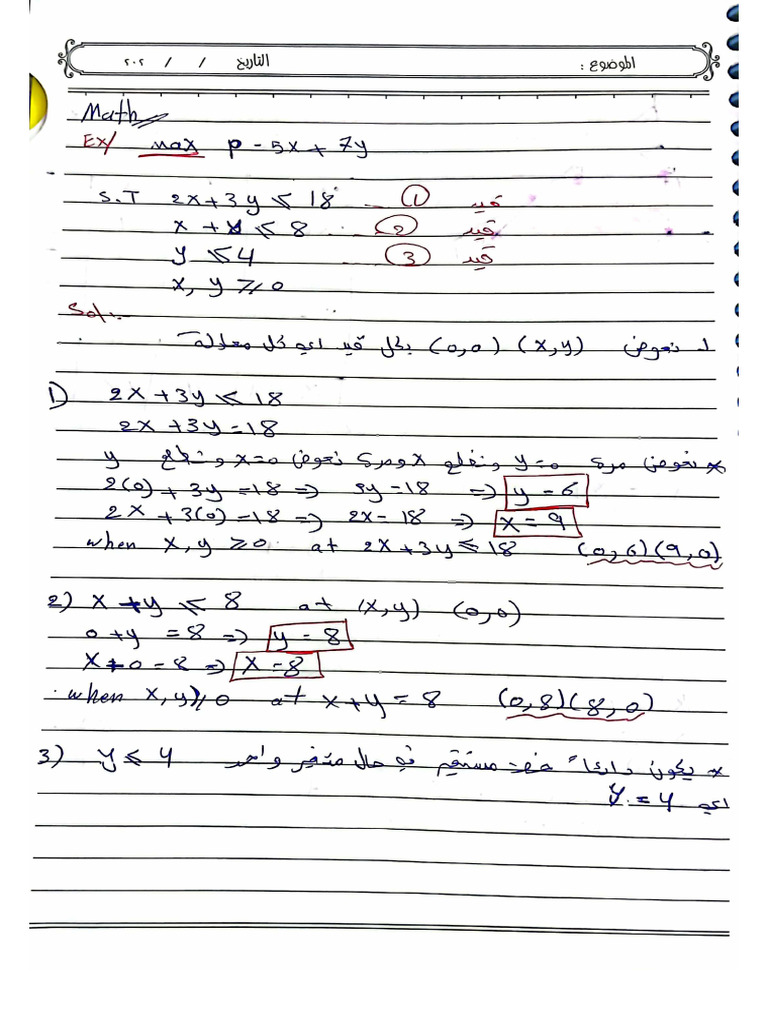 الموضوع : التاريخ / / ٢٠٢
Math
Ex/ max p = 5x + 7y
S.T 2x + 3y ≤ 18 ① قيد
x + y ≤ 8 ② قيد
y ≤ 4 ③ قيد
x, y ≥ 0
Sol.
نعوض (x,y) (0,0) بكل قيد اي كل معادلة
1) 2x + 3y ≤ 18
2x + 3y = 18
* نعوض مرة y=0 ونطلع x ومرة نعوض x=0 ونطلع y
2(0) + 3y = 18 ⇒ 3y = 18 ⇒ y = 6
2x + 3(0) = 18 ⇒ 2x = 18 ⇒ x = 9
when x, y ≥ 0 at 2x + 3y ≤ 18 (0,6)(9,0)
2) x + y ≤ 8 at (x,y) (0,0)
0 + y = 8 ⇒ y = 8
x + 0 = 8 ⇒ x = 8
when x, y ≥ 0 at x + y = 8 (0,8)(8,0)
3) y ≤ 4 * يكون دائماً خط مستقيم في حال متغير واحد
اي y = 4